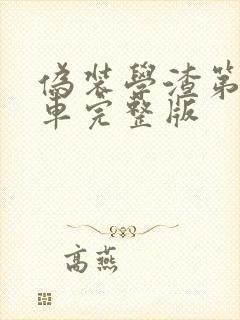 偽裝學渣第
車完整版
高燕